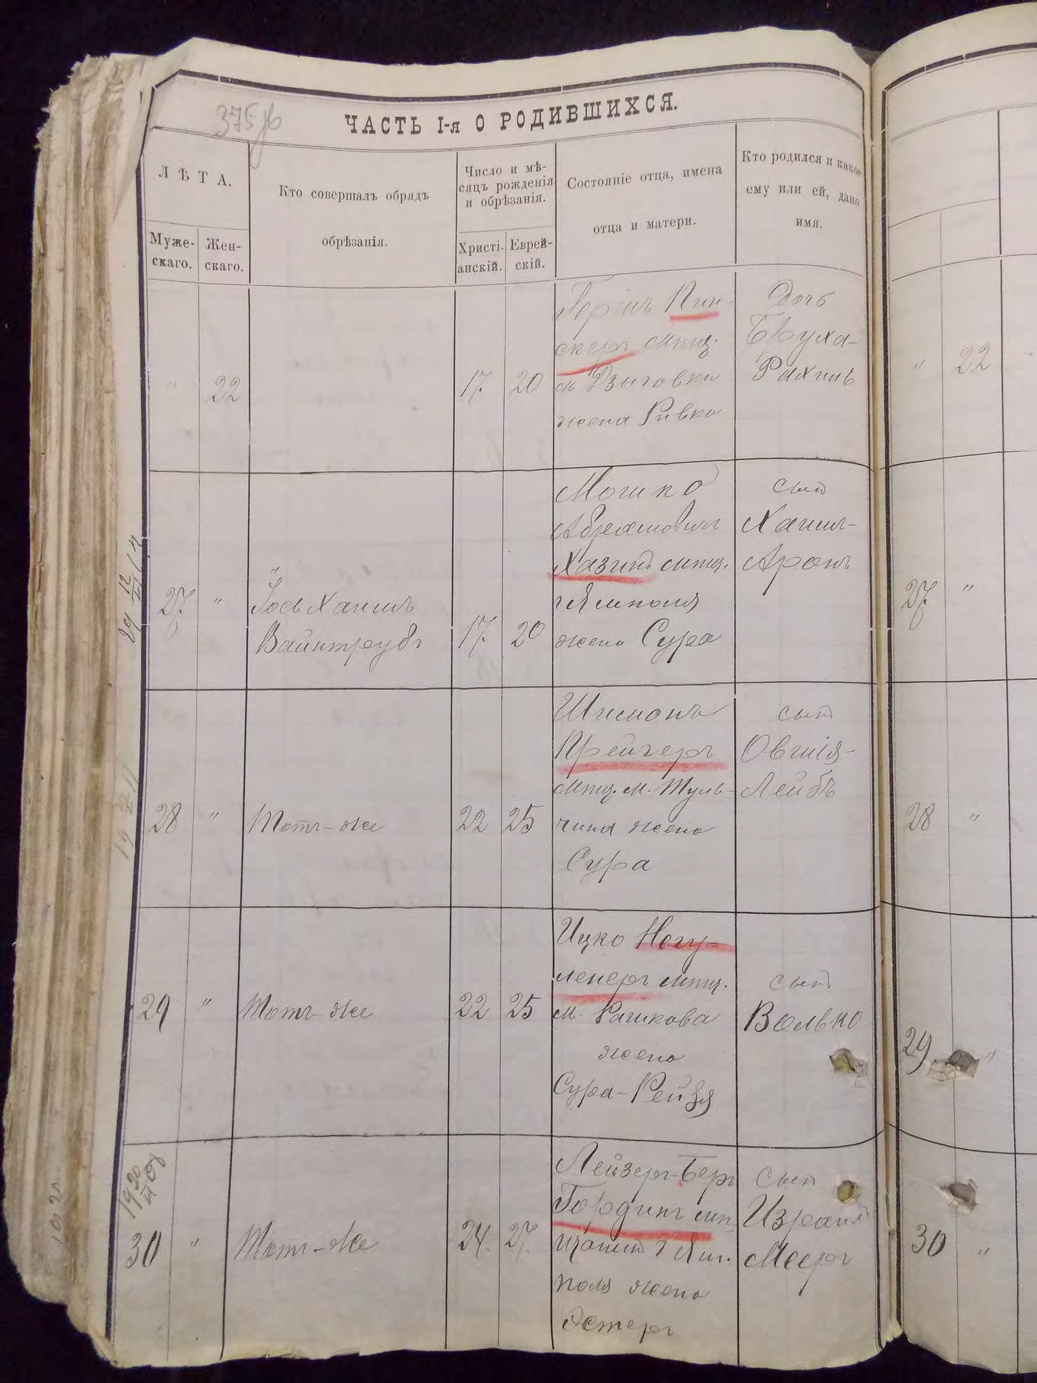 375об
ЧАСТЬ I-я О РОДИВШИХСЯ.
ЛѢТА.
Муже-
скаго.
Жен-
скаго.
Кто совершалъ обрядъ
обрѣзанія.
Число и мѣ-
сяцъ рожденія
и обрѣзанія.
Христі-
анскій.
Еврей-
скій.
Состояніе отца, имена
отца и матери.
Кто родился и какое
ему или ей, дано
имя.
" 22
17 20
Гершъ Пин-
скеръ мѣщ.
жена Ривка
Дочь
Бруха-
Рахиль
" 22
27 "
Іось Хаимъ
Вайнтрубъ
17 20
Мошко
Абрамовичъ
Хазинъ мѣщ.
г Ямполя
жена Сура
сынъ
Хаимъ-
Аронъ
27 "
28 "
Тотъ-же
22 25
Шимонъ
Крейчеръ
мѣщ. м. Туль-
чина жена
Сура
сынъ
Овшія-
Лейбъ
28 "
29 "
Тотъ-же
22 25
Ицко
мѣщ.
м. Рашкова
жена
Сура-Рейзя
сынъ
Волько
29 "
30 "
Тотъ-же
24 27
Лейзеръ-Беръ
Гординъ мѣ
щанинъ г Ям.
поля жена
Эстеръ
сынъ
Израиль
Мееръ
30 "